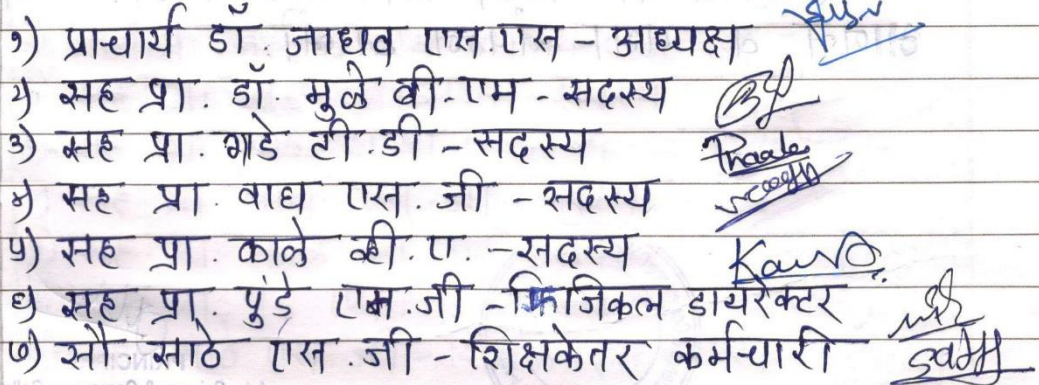 १) प्राचार्य डॉ. जाधव एस.एस - अध्यक्ष
२) सह प्रा. डॉ. मुळे बी.एम - सदस्य
३) सह प्रा. गाडे टी.डी - सदस्य
४) सह प्रा. वाघ एस.जी - सदस्य
५) सह प्रा. काळे व्ही.ए. - सदस्य
६) सह प्रा. पुंडे एम.जी - फिजिकल डायरेक्टर
७) सौ साठे एस.जी - शिक्षकेतर कर्मचारी